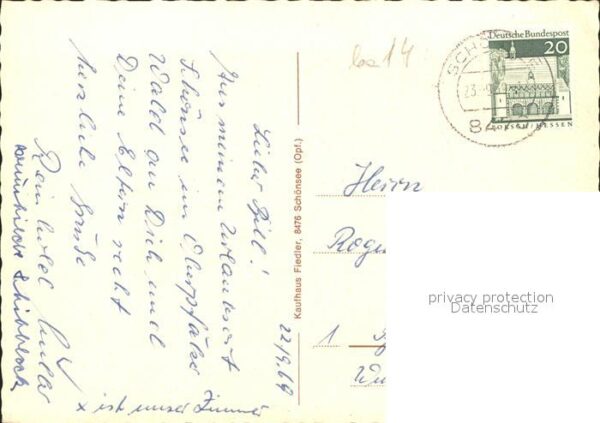 Lieber Bill!
Aus meinem Urlaubsort
Schönsee im Oberpfälzer
Wald an Dich und
Deine Eltern recht
herzliche Grüße
Reinhold
x ist unser Zimmer
22/9.69
Kaufhaus Fiedler, 8476 Schönsee (Opf.)
Deutsche Bundespost
20
LORSCH/HESSEN
SCHÖ
23.-9
84
14
Herrn
1
privacy protection
Datenschutz